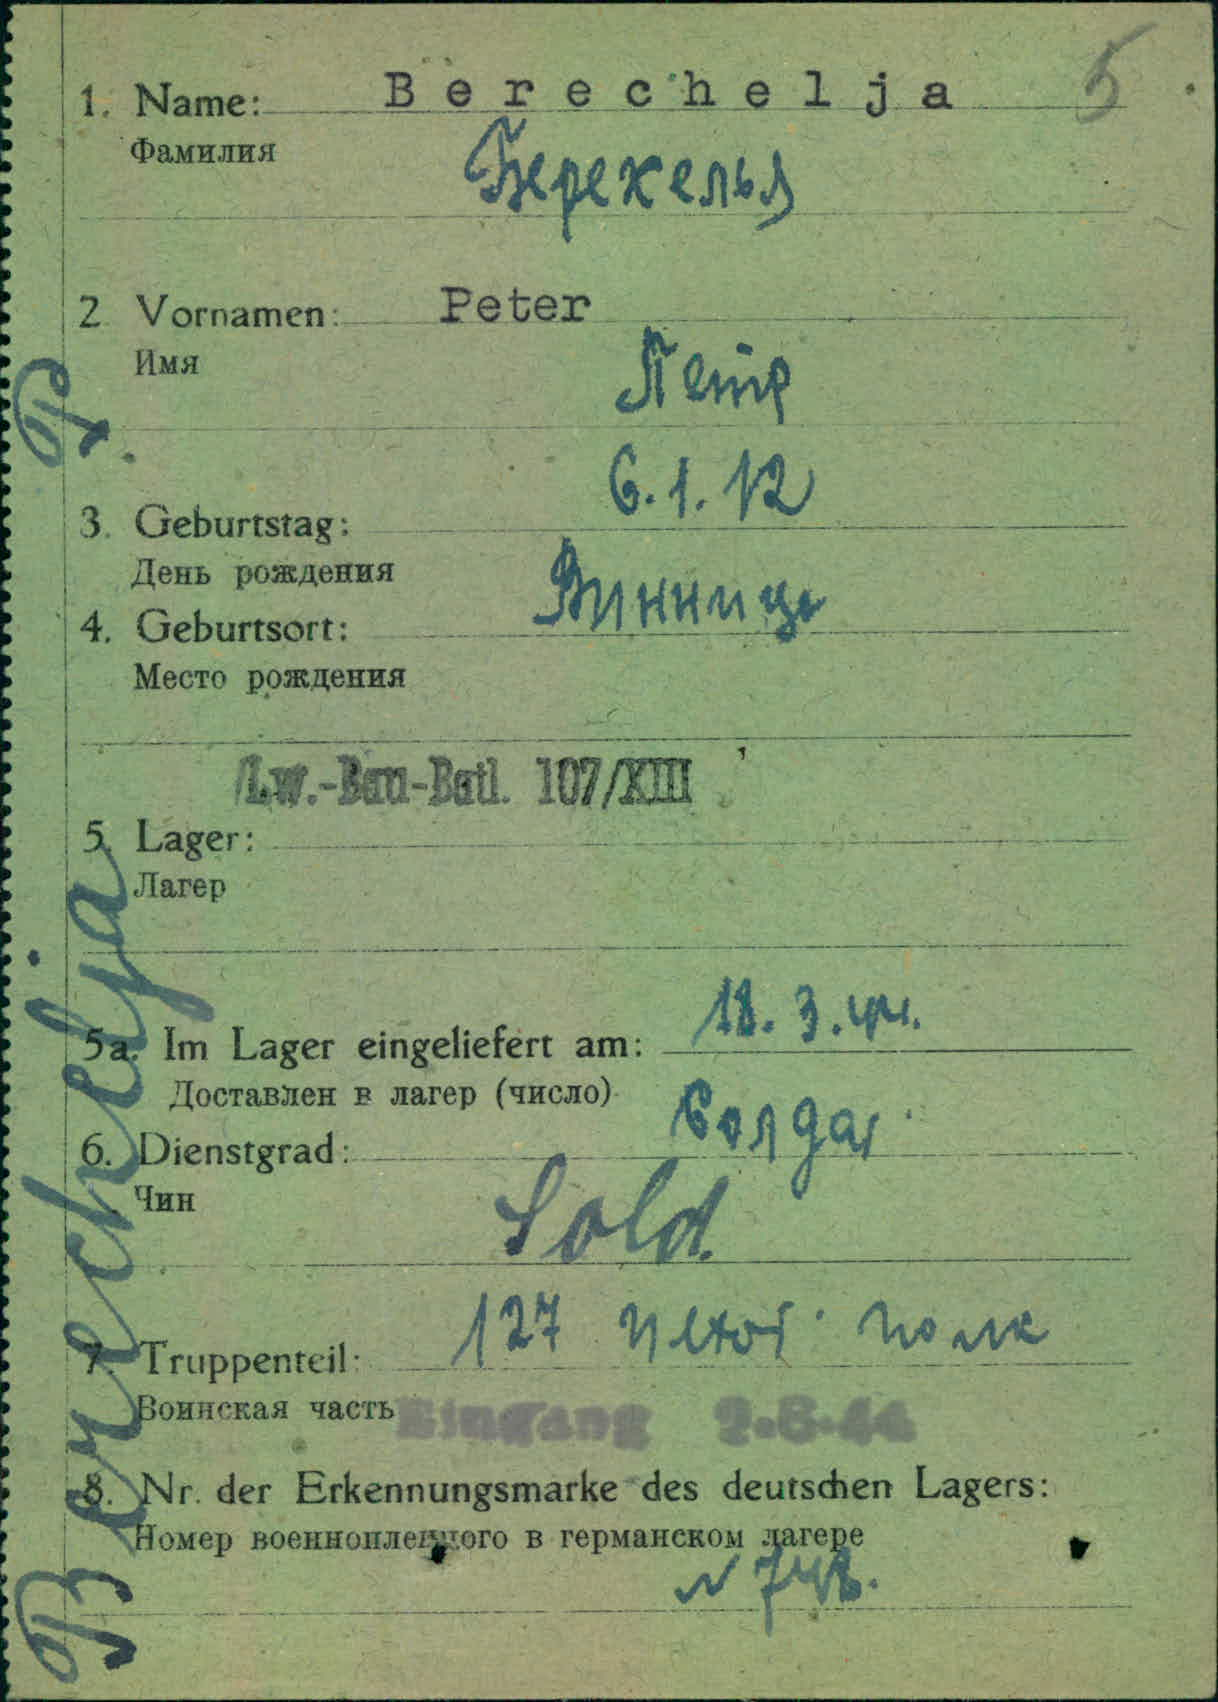 5
1. Name: Berechelja
Фамилия
Берехелья
2. Vornamen: Peter
Имя
Петр
6.1.12
3. Geburtstag:
День рождения
Винница
4. Geburtsort:
Место рождения
Lw.-Bau-Batl. 107/XIII
5. Lager:
Лагер
18.3.44.
5a. Im Lager eingeliefert am:
Доставлен в лагер (число)
Солдат
6. Dienstgrad:
Чин
Sold.
127 пехот. полк
7. Truppenteil:
Воинская часть
Eingang 2.8.44
8. Nr. der Erkennungsmarke des deutschen Lagers:
Номер военнопленного в германском лагере
N 748.
Berechelja P.